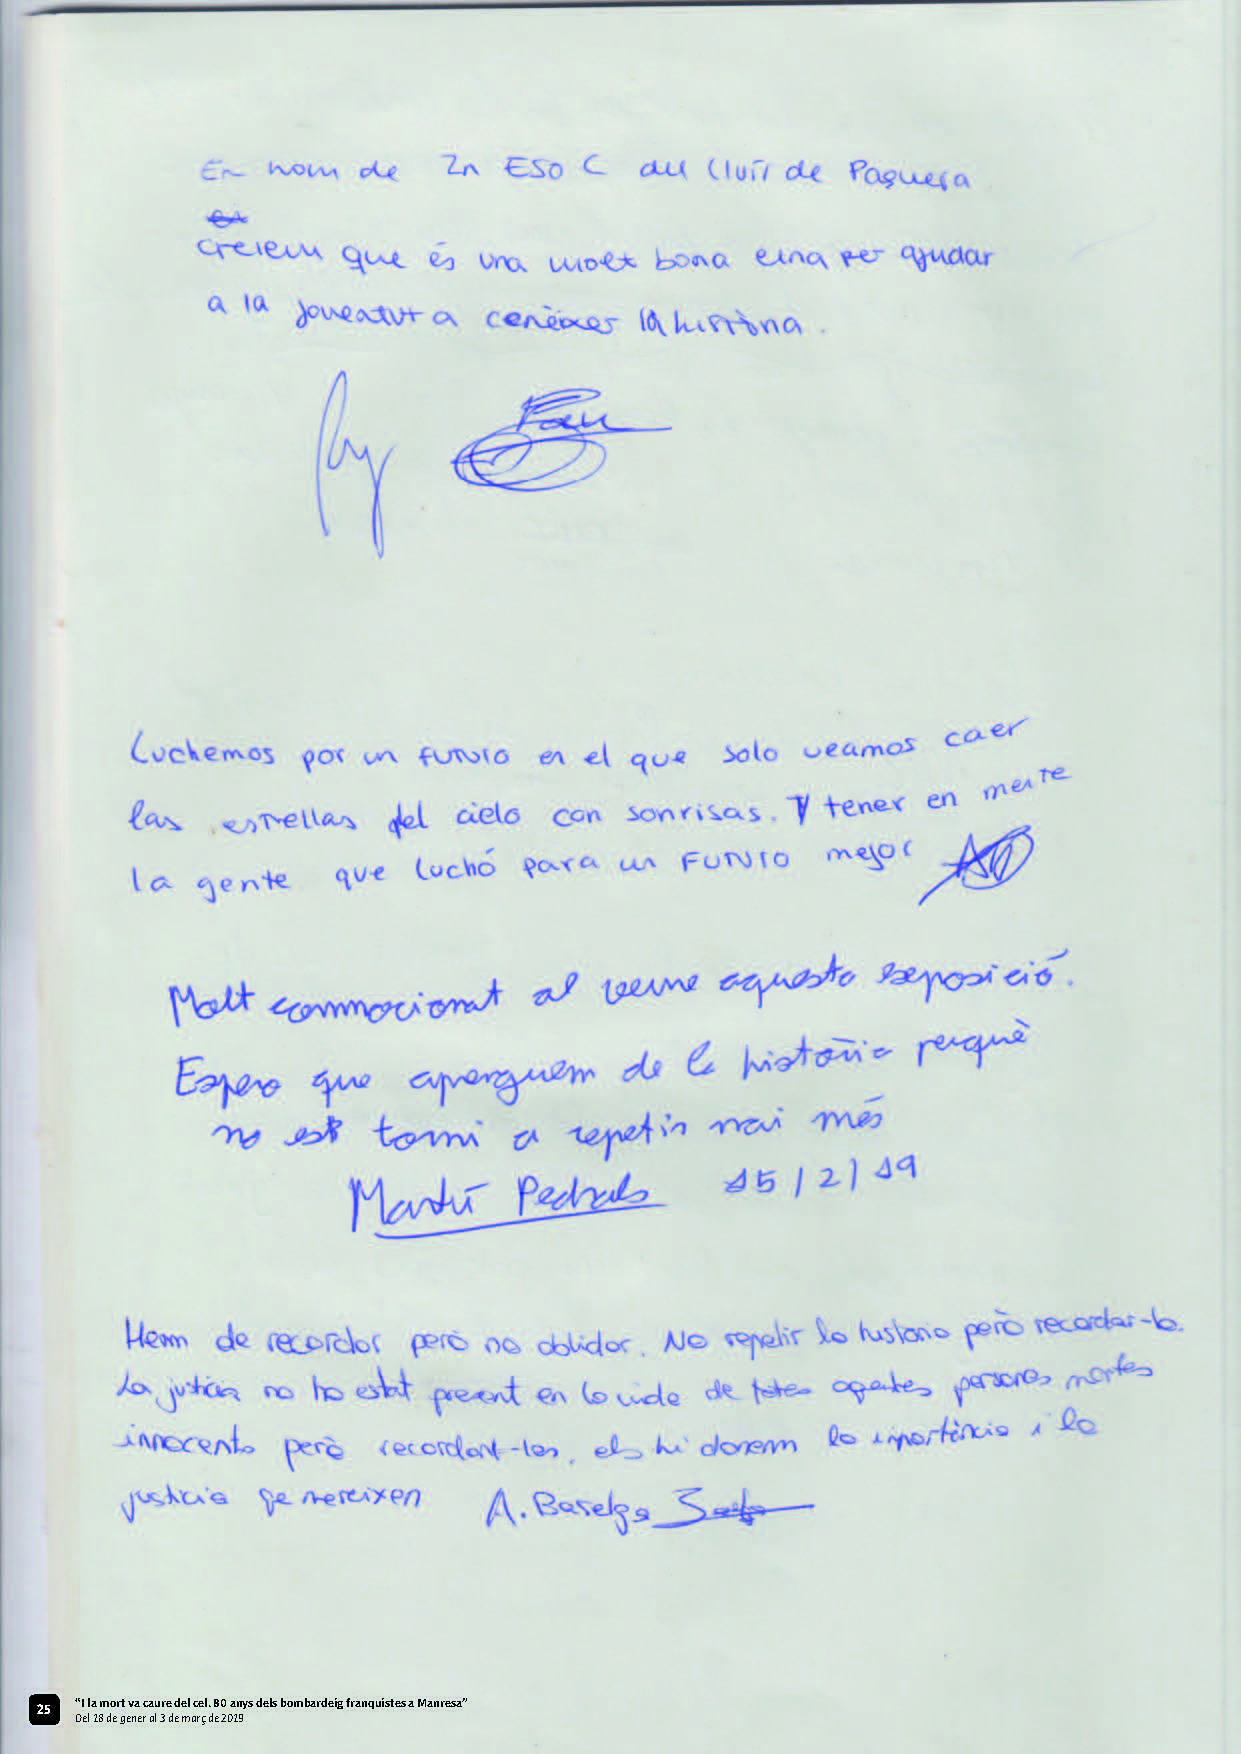 En nom de 2n ESO C del Lluís de Paguera
creiem que és una molt bona eina per ajudar
a la joventut a conèixer la història.
Pau
Luchemos por un futuro en el que solo veamos caer
las estrellas del cielo con sonrisas. Y tener en mente
la gente que luchó para un futuro mejor
Molt commocionat al veure aquesta exposició.
Espero que aprenguem de la història perquè
no es torni a repetir mai més
Martí Pedrals 15/2/19
Hem de recordar però no oblidar. No repetir la historia però recordar-la.
La justícia no ha estat present en la vida de totes aquestes persones mortes
innocents però recordant-les, els hi donem la importància i la
justicia que mereixen A. Baselga
25 "I la mort va caure del cel. 80 anys dels bombardeig franquistes a Manresa"
Del 18 de gener al 3 de març de 2019